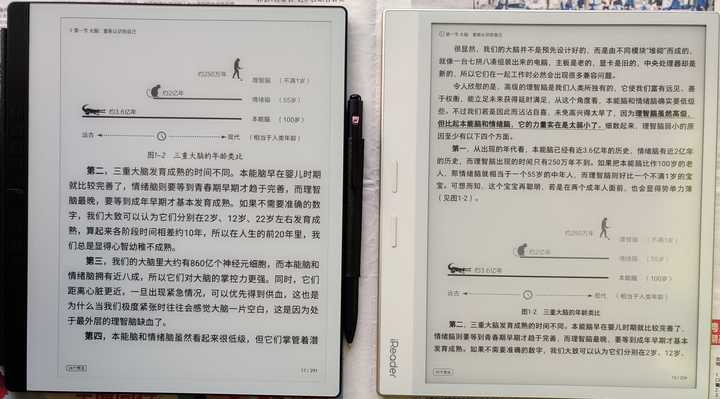 第一节 大脑：重新认识你自己
约250万年
理智脑 （不满1岁）
约2亿年
情绪脑 （55岁）
约3.6亿年
本能脑 （100岁）
远古
现代 （相当于人类年龄）
图1-2 三重大脑的年龄类比
第二，三重大脑发育成熟的时间不同。本能脑早在婴儿时期
就比较完善了，情绪脑则要等到青春期早期才趋于完善，而理智
脑最晚，要等到成年早期才基本发育成熟。如果不需要准确的
数字，我们大致可以认为它们分别在2岁、12岁、22岁左右发育成
熟，算起来各阶段时间相差约10年，所以在人生的前20年里，我
们总是显得心智幼稚不成熟。
第三，我们的大脑里大约有860亿个神经元细胞，而本能脑和
情绪脑拥有近八成，所以它们对大脑的掌控力更强。同时，它们
距离心脏更近，一旦出现紧急情况，可以优先得到供血，这也是
为什么当我们极度紧张时往往会感觉大脑一片空白，这是因为处
于最外层的理智脑缺血了。
第四，本能脑和情绪脑虽然看起来很低级，但它们掌管着潜
第一节 大脑：重新认识你自己
很显然，我们的大脑并不是预先设计好的，而是由不同模块“堆砌”而成的，
就像一台七拼八凑组装出来的电脑，主板是老的，显卡是旧的，中央处理器却是
新的，所以它们在一起工作时必然会出现很多兼容问题。
令人欣慰的是，高级的理智脑是我们人类所独有的，它使我们富有远见、善
于权衡，能立足未来获得延时满足，从这个角度看，本能脑和情绪脑确实要低级
些。不过我们若是因此而沾沾自喜，未免高兴得太早了，因为理智脑虽然高级，
但比起本能脑和情绪脑，它的力量实在是太弱小了。细数起来，理智脑弱小的原
因至少有以下四个方面。
第一，从出现的年代看，本能脑已经有近3.6亿年的历史，情绪脑有近2亿年
的历史，而理智脑出现的时间只有250万年不到。如果把本能脑比作100岁的老
人，那情绪脑就相当于一个55岁的中年人，而理智脑则好比一个不满1岁的宝
宝。可想而知，这个宝宝再聪明，若是在两个成年人面前，也会显得势单力薄
（见图1-2）。
约250万年
理智脑 （不满1岁）
约2亿年
情绪脑 （55岁）
约3.6亿年
本能脑 （100岁）
远古
现代 （相当于人类年龄）
图1-2 三重大脑的年龄类比
第二，三重大脑发育成熟的时间不同。本能脑早在婴儿时期就比较完善了，
情绪脑则要等到青春期早期才趋于完善，而理智脑最晚，要等到成年早期才基本
发育成熟。如果不需要准确的数字，我们大致可以认为它们分别在2岁、12岁、
iReader